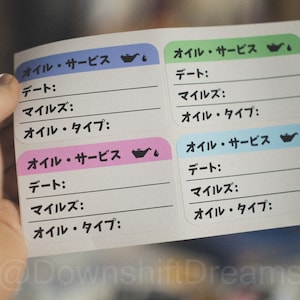 オイル・サービス
デート:
マイルズ:
オイル・タイプ:
オイル・サービス
デート:
マイルズ:
オイル・タイプ:
オイル・サービス
デート:
マイルズ:
オイル・タイプ:
オイル・サービス
デート:
マイルズ:
オイル・タイプ:
@DownshiftDreams